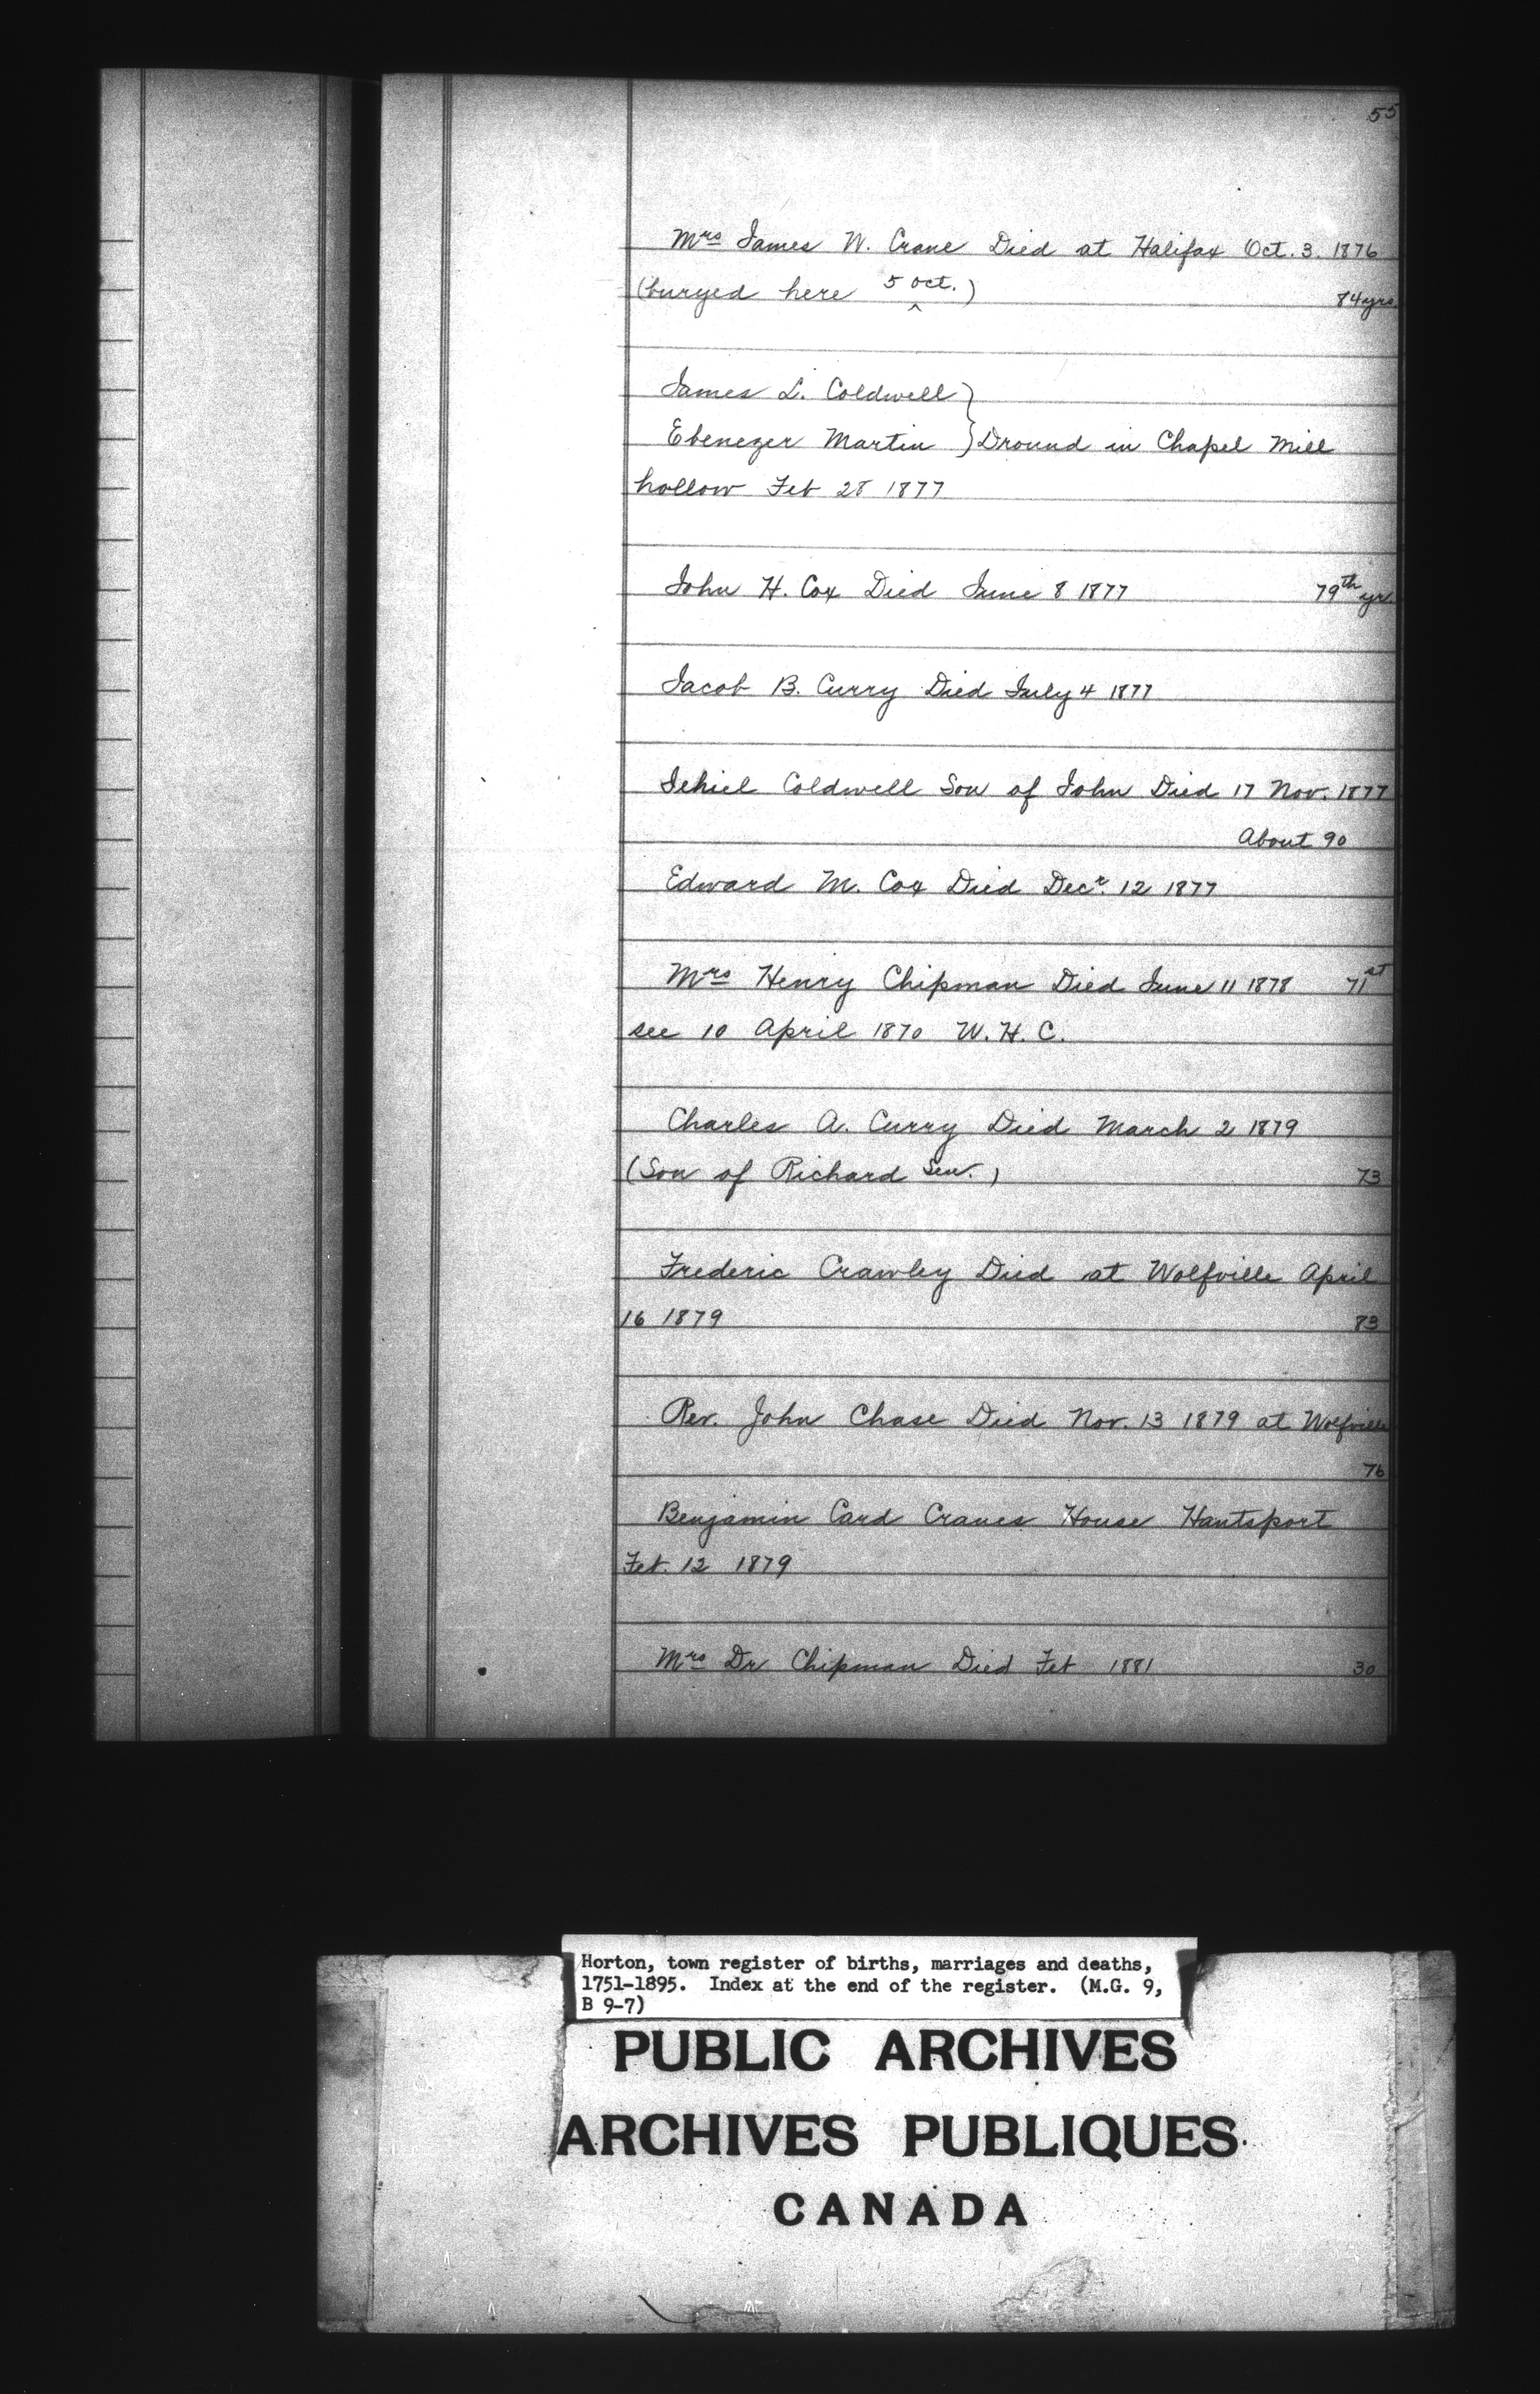 55
Mrs James W. Crane Died at Halifax Oct. 3. 1876
(buryed here 5 Oct.)
84 yrs
James L. Coldwell }
Ebenezer Martin } Dround in Chapel Mill
hollow Feb 28 1877
John H. Cox Died June 8 1877 79th yr.
Jacob B. Curry Died July 4 1877
Jehiel Coldwell Son of John Died 17 Nov. 1877
About 90
Edward M. Cox Died Decr. 12 1877
Mrs Henry Chipman Died June 11 1878 71st
see 10 April 1870 W. H. C.
Charles A. Curry Died March 2 1879
(Son of Richard Sen.) 73
Frederic Crawley Died at Wolfville April
16 1879 83
Rev. John Chase Died Nov. 13 1879 at Wolfville
76
Benjamin Card Cranes House Hantsport
Feb. 12 1879
Mrs Dr Chipman Died Feb 1881 30
Horton, town register of births, marriages and deaths,
1751-1895. Index at the end of the register. (M.G. 9,
B 9-7)
PUBLIC ARCHIVES
ARCHIVES PUBLIQUES
CANADA